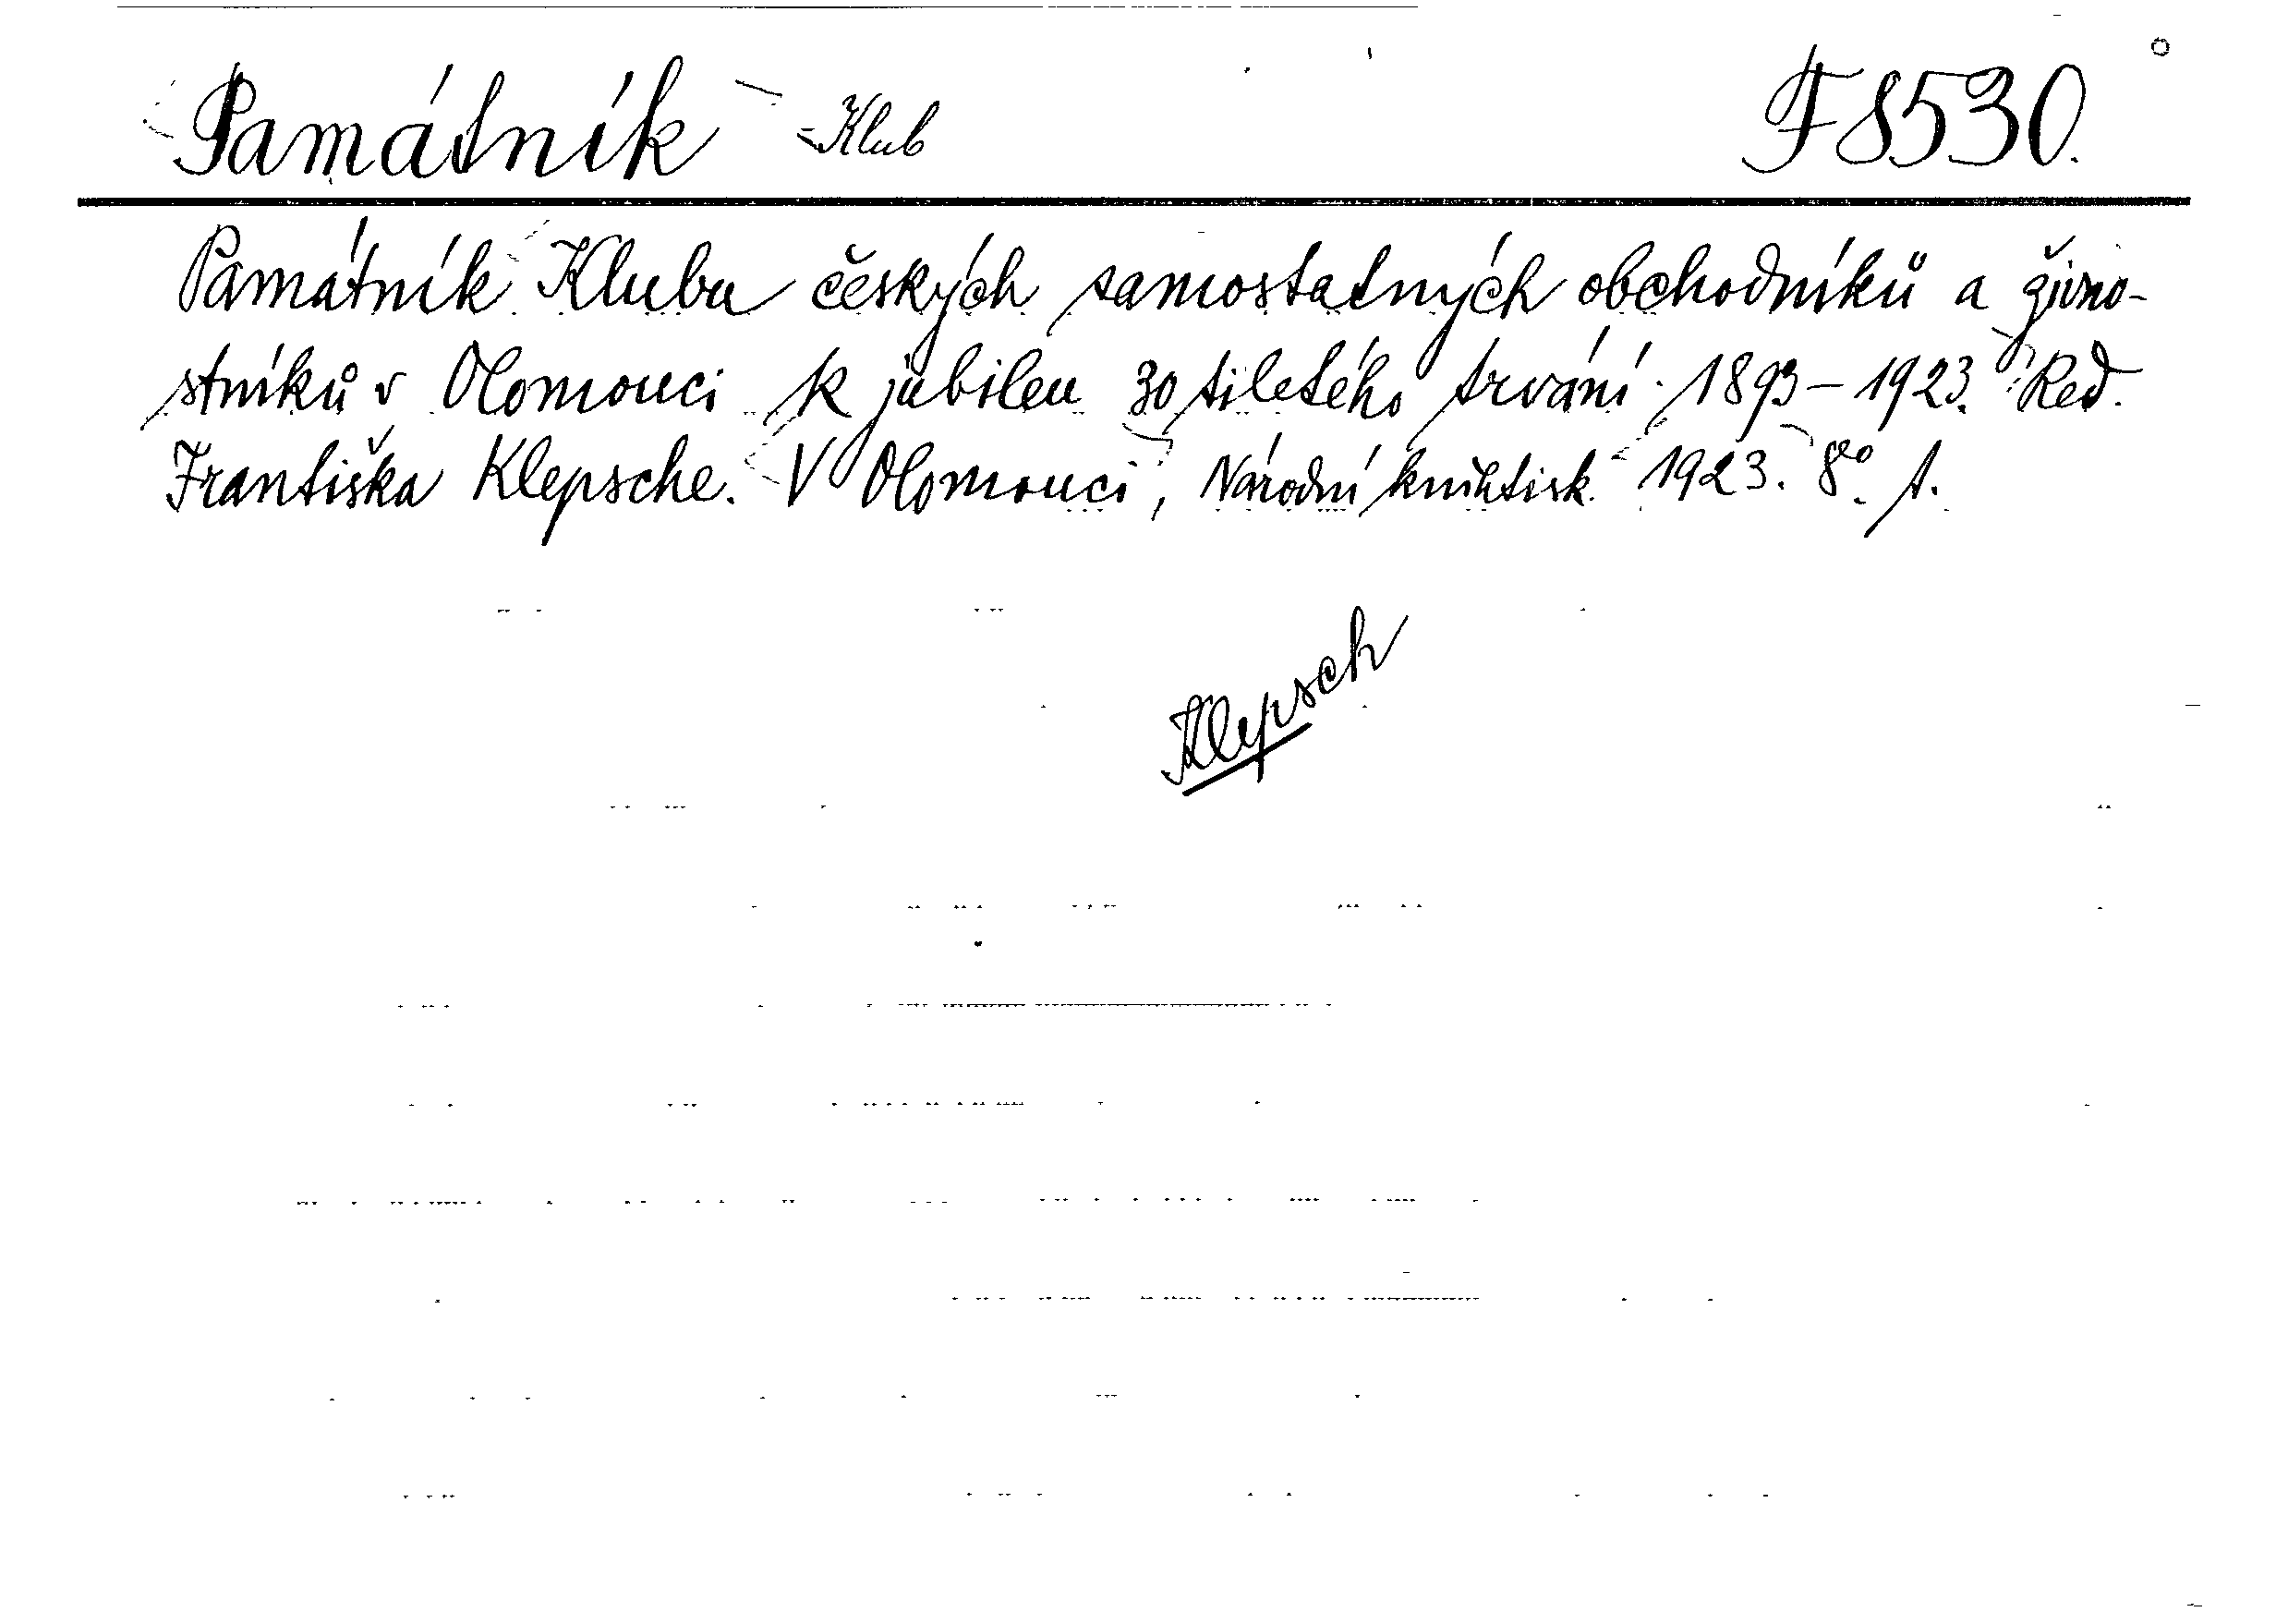 Památník - Klub F 8530.
Památník Klubu českých samostatných obchodníků a živno-
stníků v Olomouci k jubileu 30 tiletého trvání. 1893-1923. Red.
Františka Klepsche. V Olomouci, Národní knihtisk. 1923. 8°. f.
Klepsch